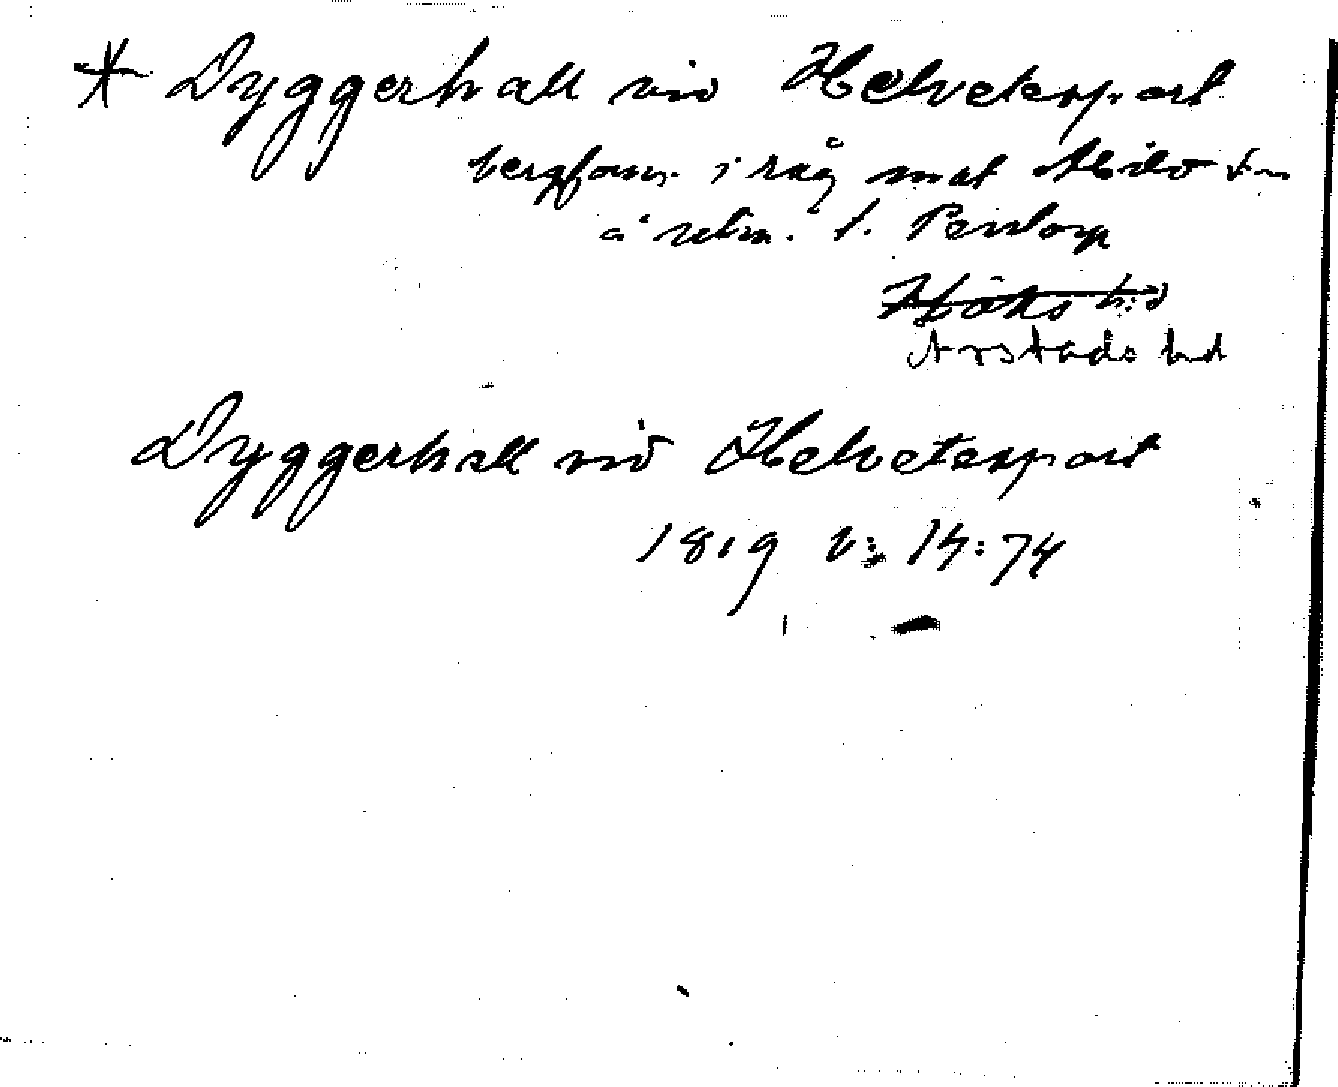 * Dyggerhall vid Helvetesport
bergform. i råg mot Abild sn
å utm. t.
Höks hd
Årstads hd
Dyggerhall vid Helvetesport
1819 v: 14:74